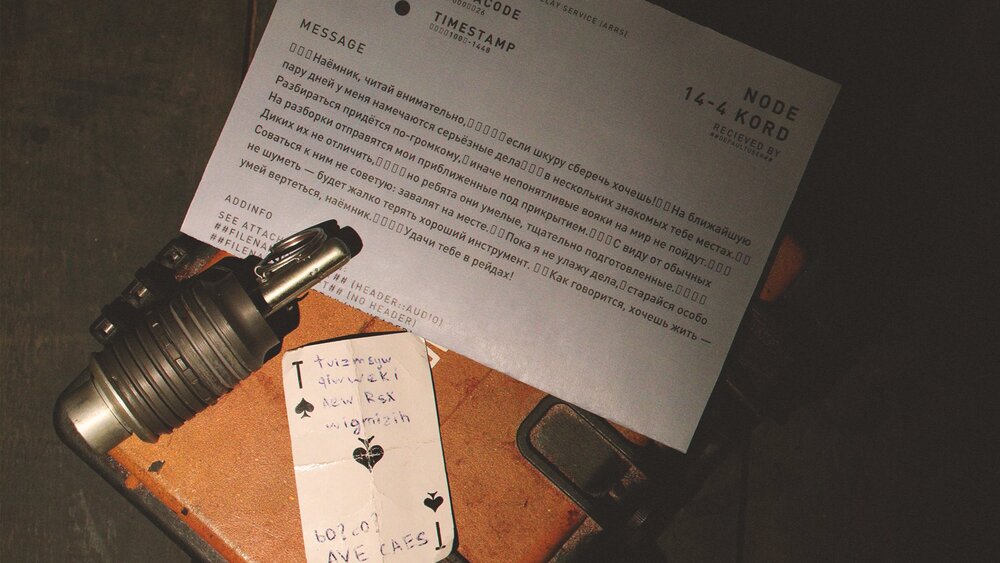 ELAY SERVICE (ARRS)
TIMESTAMP
MESSAGE
▯▯▯Наёмник, читай внимательно,▯▯▯▯▯если шкуру сберечь хочешь!▯▯На ближайшую
пару дней у меня намечаются серьёзные дела▯▯▯в нескольких знакомых тебе местах.▯▯
Разбираться придётся по-громкому,▯иначе непонятливые вояки на мир не пойдут.▯▯▯
На разборки отправятся мои приближенные под прикрытием.▯▯▯С виду от обычных
Диких их не отличить,▯▯▯▯но ребята они умелые, тщательно подготовленные.▯▯▯▯
Соваться к ним не советую: завалят на месте.▯▯Пока я не улажу дела,▯старайся особо
не шуметь — будет жалко терять хороший инструмент. ▯▯Как говорится, хочешь жить —
умей вертеться, наёмник.▯▯▯▯Удачи тебе в рейдах!
NODE
14-4 KORD
RECIEVED BY
##DEFAULTUSER##
ADDINFO
SEE ATTAC
##FILENA
##FILEN
## (HEADER::AUDIO)
T## (NO HEADER)
T
tvizmsyw
qiwweki
AEW RSX
wigmizih
bO?cO?
AVE CAES
T